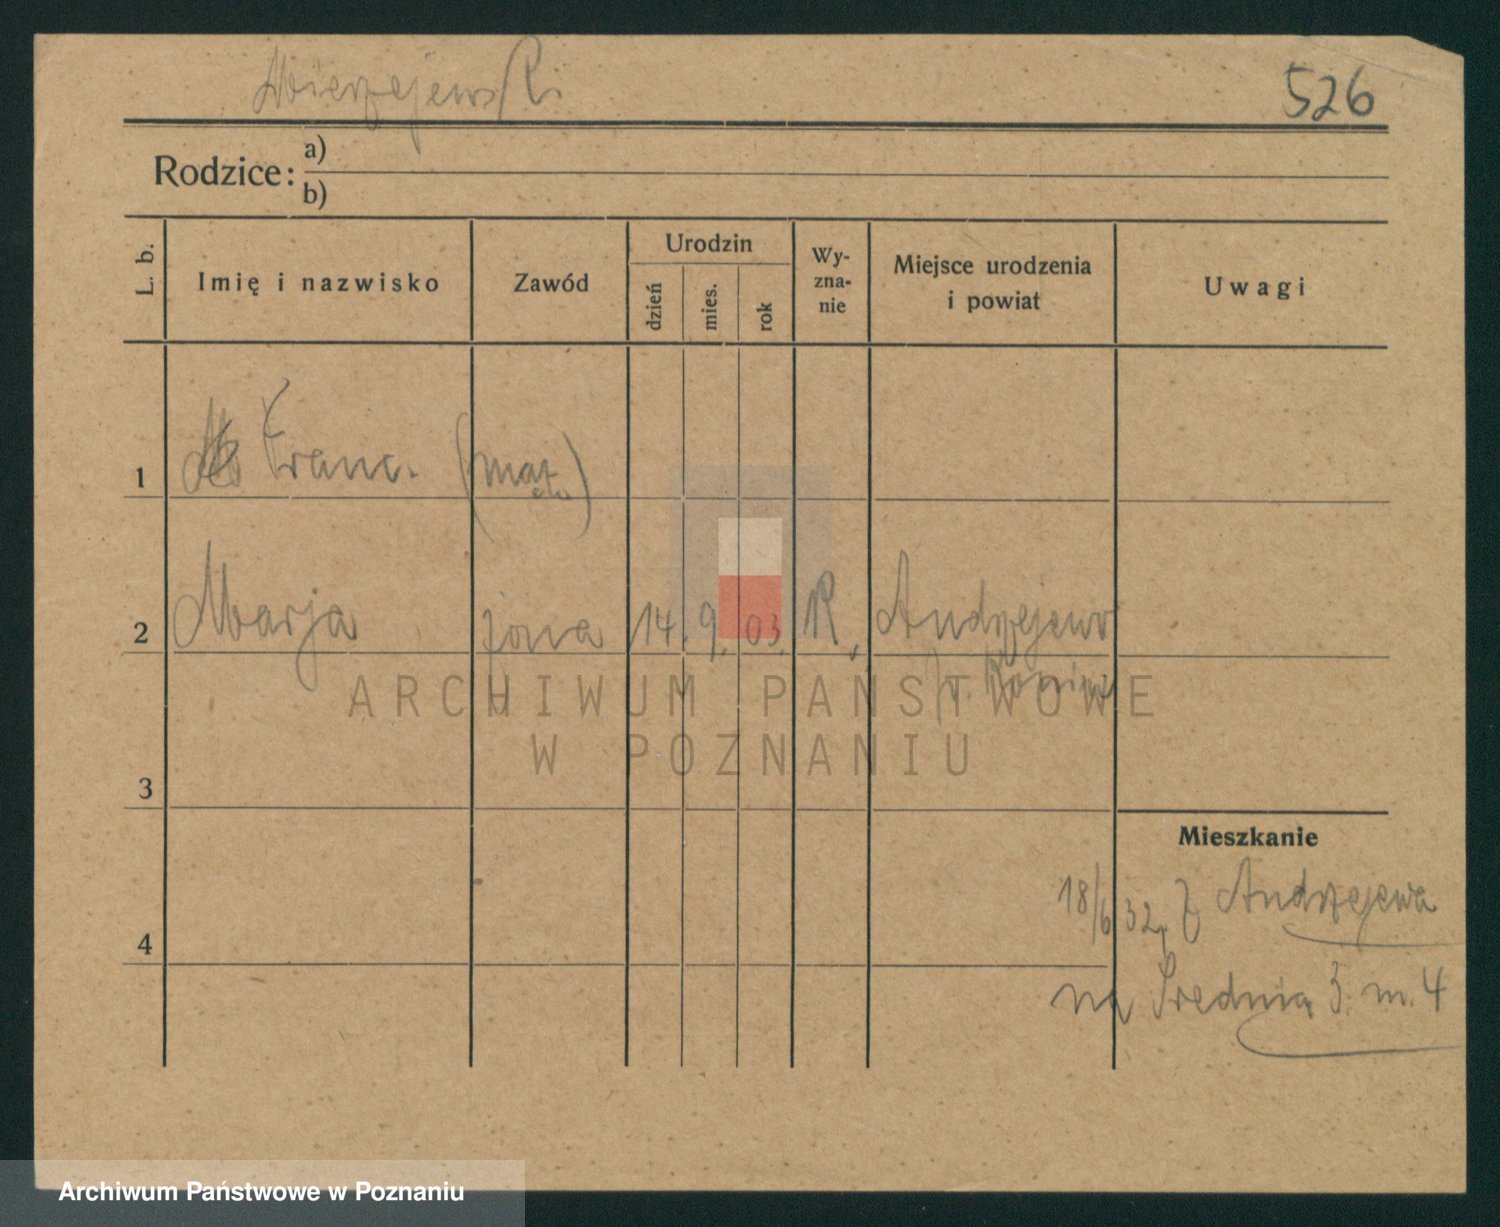 Mierzejewski
526
Rodzice: a)
b)
L. b.
Imię i nazwisko
Zawód
Urodzin
dzień
mies.
rok
Wy-
zna-
nie
Miejsce urodzenia
i powiat
Uwagi
1 Franc. (mał.)
2 Marja żona 14. 9. 03. R. Andrzejewo
p. Konin
3
4
Mieszkanie
18/6 32. Z Andrzejewa
na Średnią 3. m. 4
ARCHIWUM PAŃSTWOWE
W POZNANIU
Archiwum Państwowe w Poznaniu